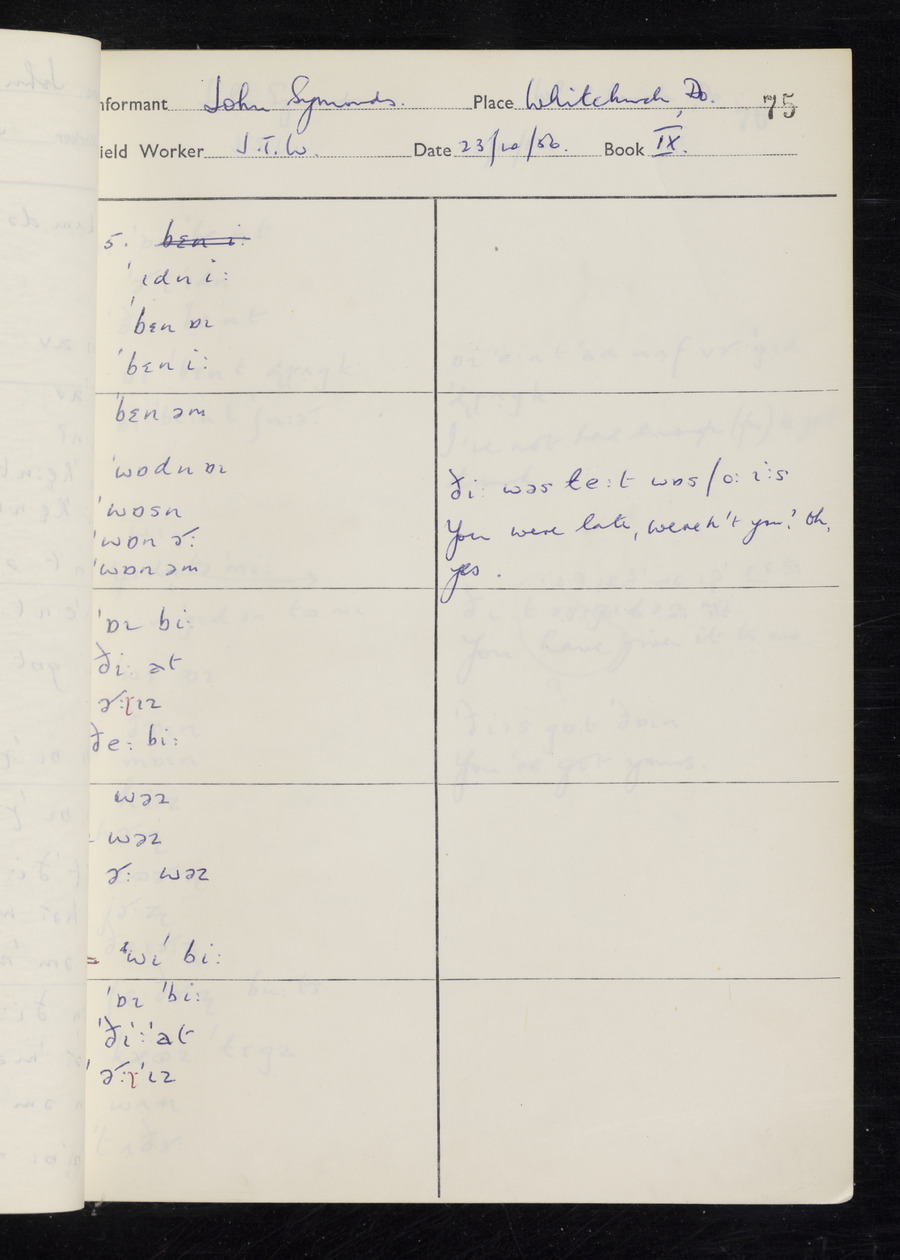 nformant John Symonds. Place Whitchurch, Do. 75
ield Worker J.T.W. Date 23/10/56. Book IX.
5. bɛn i:
ˈɪdn i:
ˈbɛn ɒɪ
ˈbɛn i:
ˈbɛn əm
ˈwɒdn ɒɪ
ˈwɒsn
ˈwɒn ɚ:
ˈwɒn əm
ði: wəs le:t wɒs / o: i:s
You were late, weren't you? Oh,
yes.
ˈɒɪ bi:
ði: at
ɚ:ɽɪz
ðe: bi:
wəz
wəz
ɚ: wəz
wi bi:
ˈɒɪ ˈbi:
ˈði: ˈat
ˈɚ:ɽˈɪz